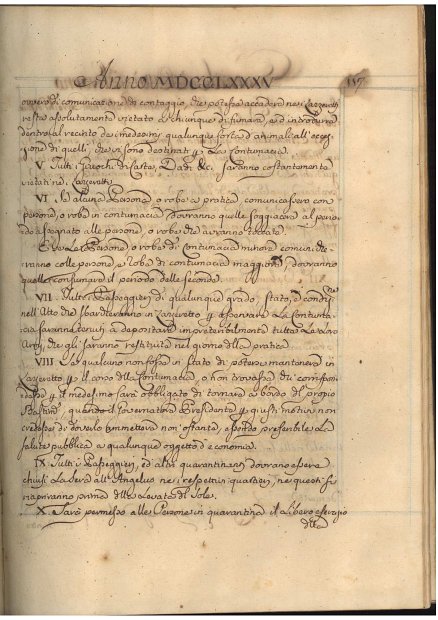 Anno MDCCLXXXV
117
ovvero di comunicazione di contaggio, che potesse accadere nei Lazzeretti
resta assolutamente vietato a chiunque di fumare, e d'introdurre
dentro al recinto dei medesimi qualunque sorta d'animali all'eccez-
zione di quelli, che vi sono destinati p. La Contumacia.
V. Tutti Giuochi di Carte, Dadi &c. saranno costantemente
vietati nei Lazzeretti
VI. Se alcuna Persona, o roba a pratica, comunicassero con
persone, o roba in contumacia dovranno quelle soggiacere al perio-
do assegnato alle persone, o robe che avranno toccate.
E se Le Persone, o robe di Contumacia minore comuniche-
ranno colle persone, e roba di contumacia maggiore, dovranno
quelle consumare il periodo delle seconde.
VII. Tutti i Passeggieri di qualunque grado, stato, e condiz.
nell'Atto che sbarcheranno in Lazzeretto p. osservare La Contuma-
cia saranno tenuti a depositare impreteribilmente tutte Le Loro
Armi, che gli saranno restituite nel giorno della pratica.
VIII. Se qualcuno non fosse in stato di potersi mantenere in
Lazzeretto p. il corso della Contumacia, o non trovasse chi corrispon-
desse p. il medesimo sarà obbligato di tornare a bordo del propio
Bastim. quando il Governatore Presidente p. giusti motivi non
credesse di doverlo ammettere non ostante, essendo preferibile La
salute pubblica a qualunque oggetto d'economia.
IX. Tutti i Passeggieri, ed altri quarantinanti dovranno essere
chiusi La sera all'Angelus nei respettivi quartieri, nei questi si
riapriranno prima della Levata del Sole.
X. Sarà permesso alle Persone in quarantina il Libero esercizio
della